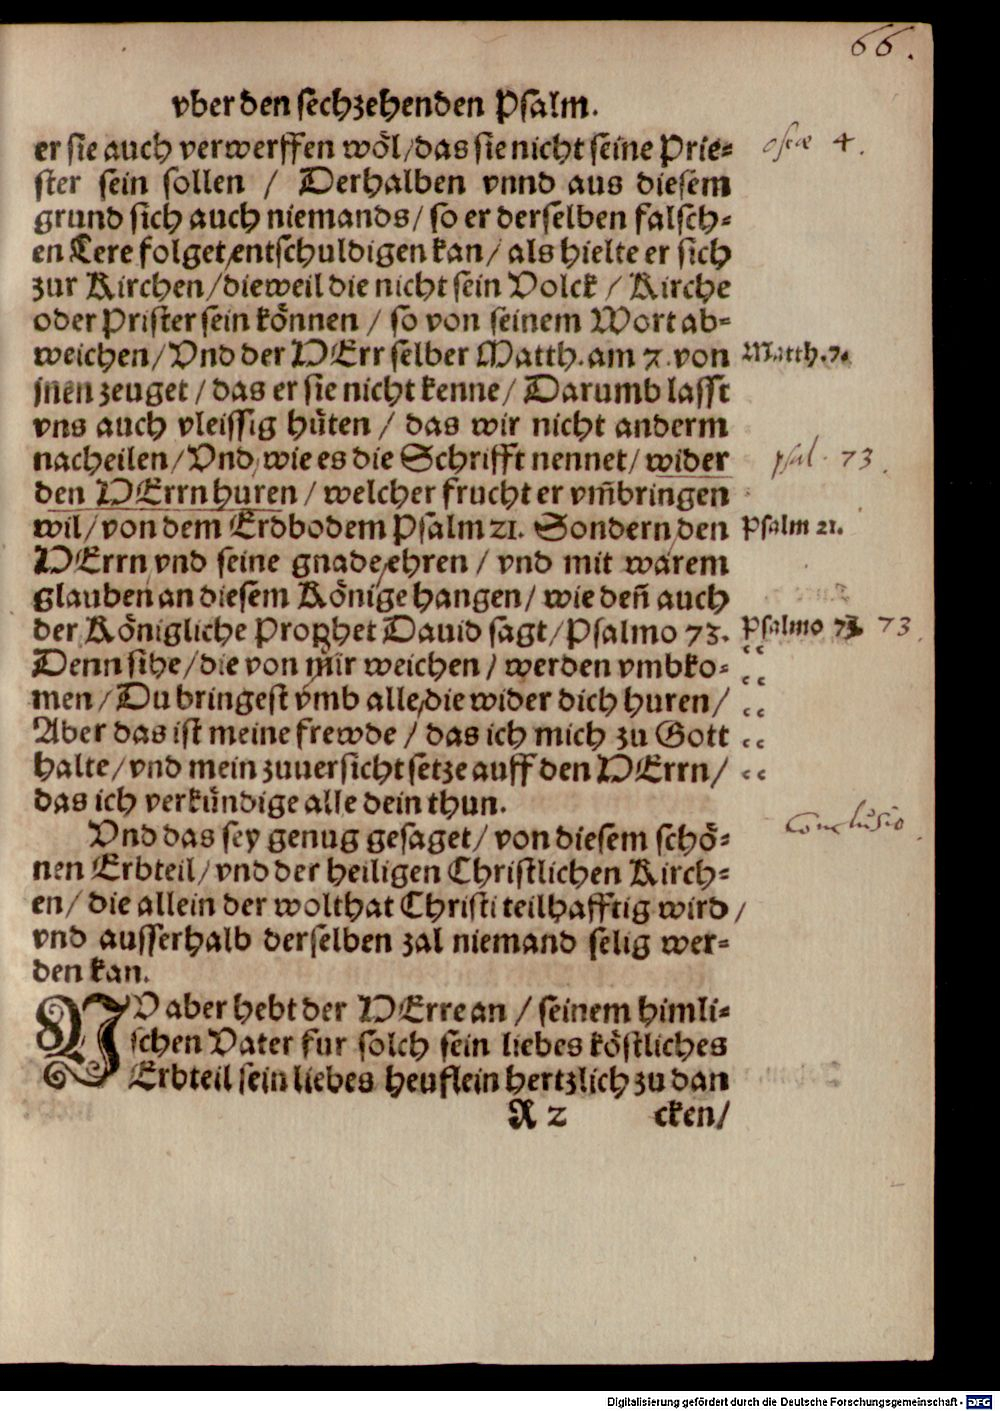 66.
vber den sechzehenden Psalm.
er sie auch verwerffen wöl/das sie nicht seine Prie= oseæ 4.
ster sein sollen / Derhalben vnnd aus diesem
grund sich auch niemands/ so er derselben falsch=
en Lere folget/entschuldigen kan/ als hielte er sich
zur Kirchen/dieweil die nicht sein Volck / Kirche
oder Prister sein können / so von seinem Wort ab=
weichen/Vnd der HErr selber Matth. am 7. von Matth. 7.
jnen zeuget / das er sie nicht kenne/ Darumb lasst
vns auch vleissig hüten / das wir nicht anderm
nacheilen/Vnd/wie es die Schrifft nennet/ wider psal. 73.
den HErrn huren / welcher frucht er vm̃bringen
wil/von dem Erdbodem Psalm 21. Sondern/den Psalm 21.
HErrn/vnd seine gnade/ehren / vnd mit warem
glauben an diesem Könige hangen/ wie den̄ auch
der Königliche Prophet Dauid sagt/Psalmo 73. Psalmo 73. 73.
Denn sihe/die von mir weichen / werden vmbko=
men/Du bringest vmb alle/die wider dich huren/
Aber das ist meine frewde / das ich mich zu Gott
halte/vnd mein zuuersicht setze auff den HErrn/
das ich verkündige alle dein thun.
Vnd das sey genug gesaget/ von diesem schö= Conclusio.
nen Erbteil/vnd der heiligen Christlichen Kirch=
en/ die allein der wolthat Christi teilhafftig wird/
vnd ausserhalb derselben zal niemand selig wer=
den kan.
NV aber hebt der HErre an / seinem himli=
schen Vater fur solch sein liebes köstliches
Erbteil sein liebes heuflein hertzlich zu dan
R 2 cken/
Digitalisierung gefördert durch die Deutsche Forschungsgemeinschaft - DFG